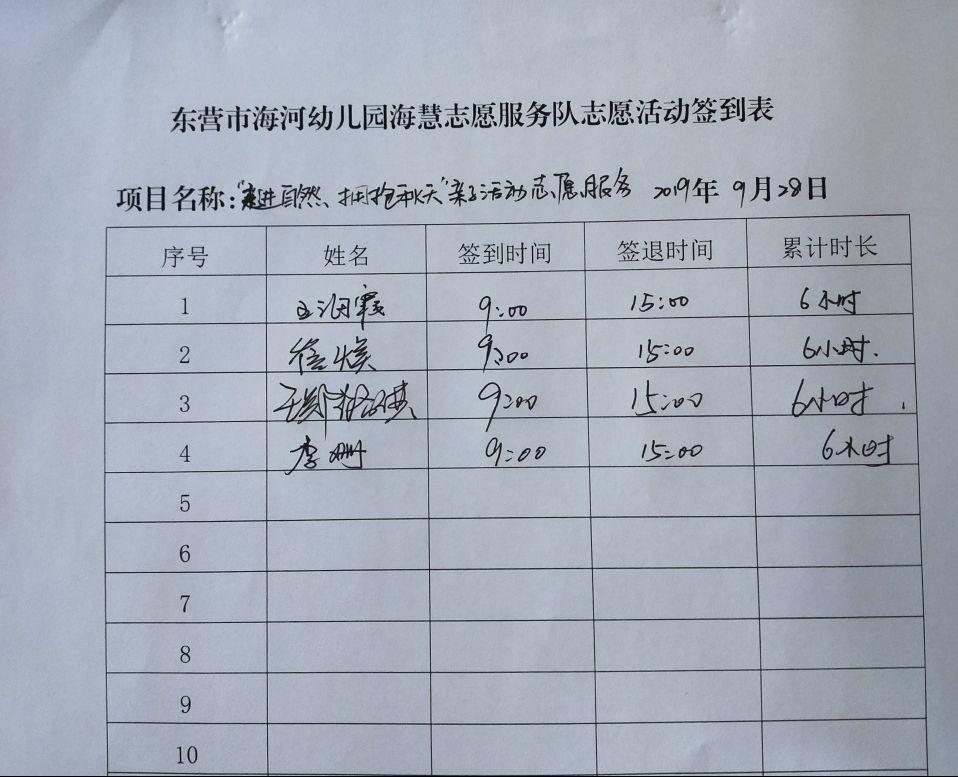 东营市海河幼儿园海慧志愿服务队志愿活动签到表
项目名称:“走进自然、拥抱秋天”亲子活动志愿服务 2019年 9月28日
序号 姓名 签到时间 签退时间 累计时长
1 9:00 15:00 6小时
2 9:00 15:00 6小时.
3 9:00 15:00 6小时.
4 李珊 9:00 15:00 6小时
5
6
7
8
9
10